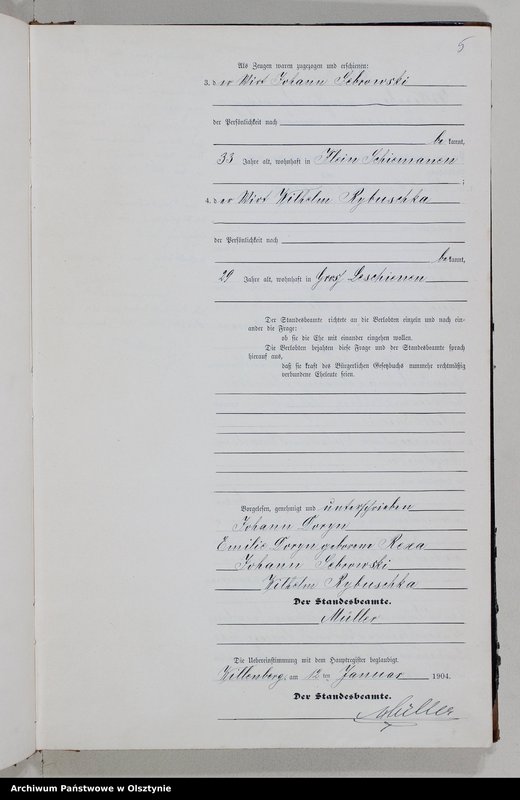 5
Als Zeugen waren zugezogen und erschienen:
3. der Wirt Johann Sebrowski
der Persönlichkeit nach
bekannt,
33 Jahre alt, wohnhaft in Klein Schiemanen
;
4. der Wirt Wilhelm Rybuschka
der Persönlichkeit nach
bekannt,
29 Jahre alt, wohnhaft in Groß Leschienen
Der Standesbeamte richtete an die Verlobten einzeln und nach ein-
ander die Frage:
ob sie die Ehe mit einander eingehen wollen.
Die Verlobten bejahten diese Frage und der Standesbeamte sprach
hierauf aus,
daß sie kraft des Bürgerlichen Gesetzbuchs nunmehr rechtmäßig
verbundene Eheleute seien.
Vorgelesen, genehmigt und unterschrieben
Johann Doryn
Emilie Doryn geborene Rexa
Johann Sebrowski
Wilhelm Rybuschka
Der Standesbeamte.
Müller
Die Uebereinstimmung mit dem Hauptregister beglaubigt.
Willenberg, am 12ten Januar 1904.
Der Standesbeamte.
Müller
Archiwum Państwowe w Olsztynie